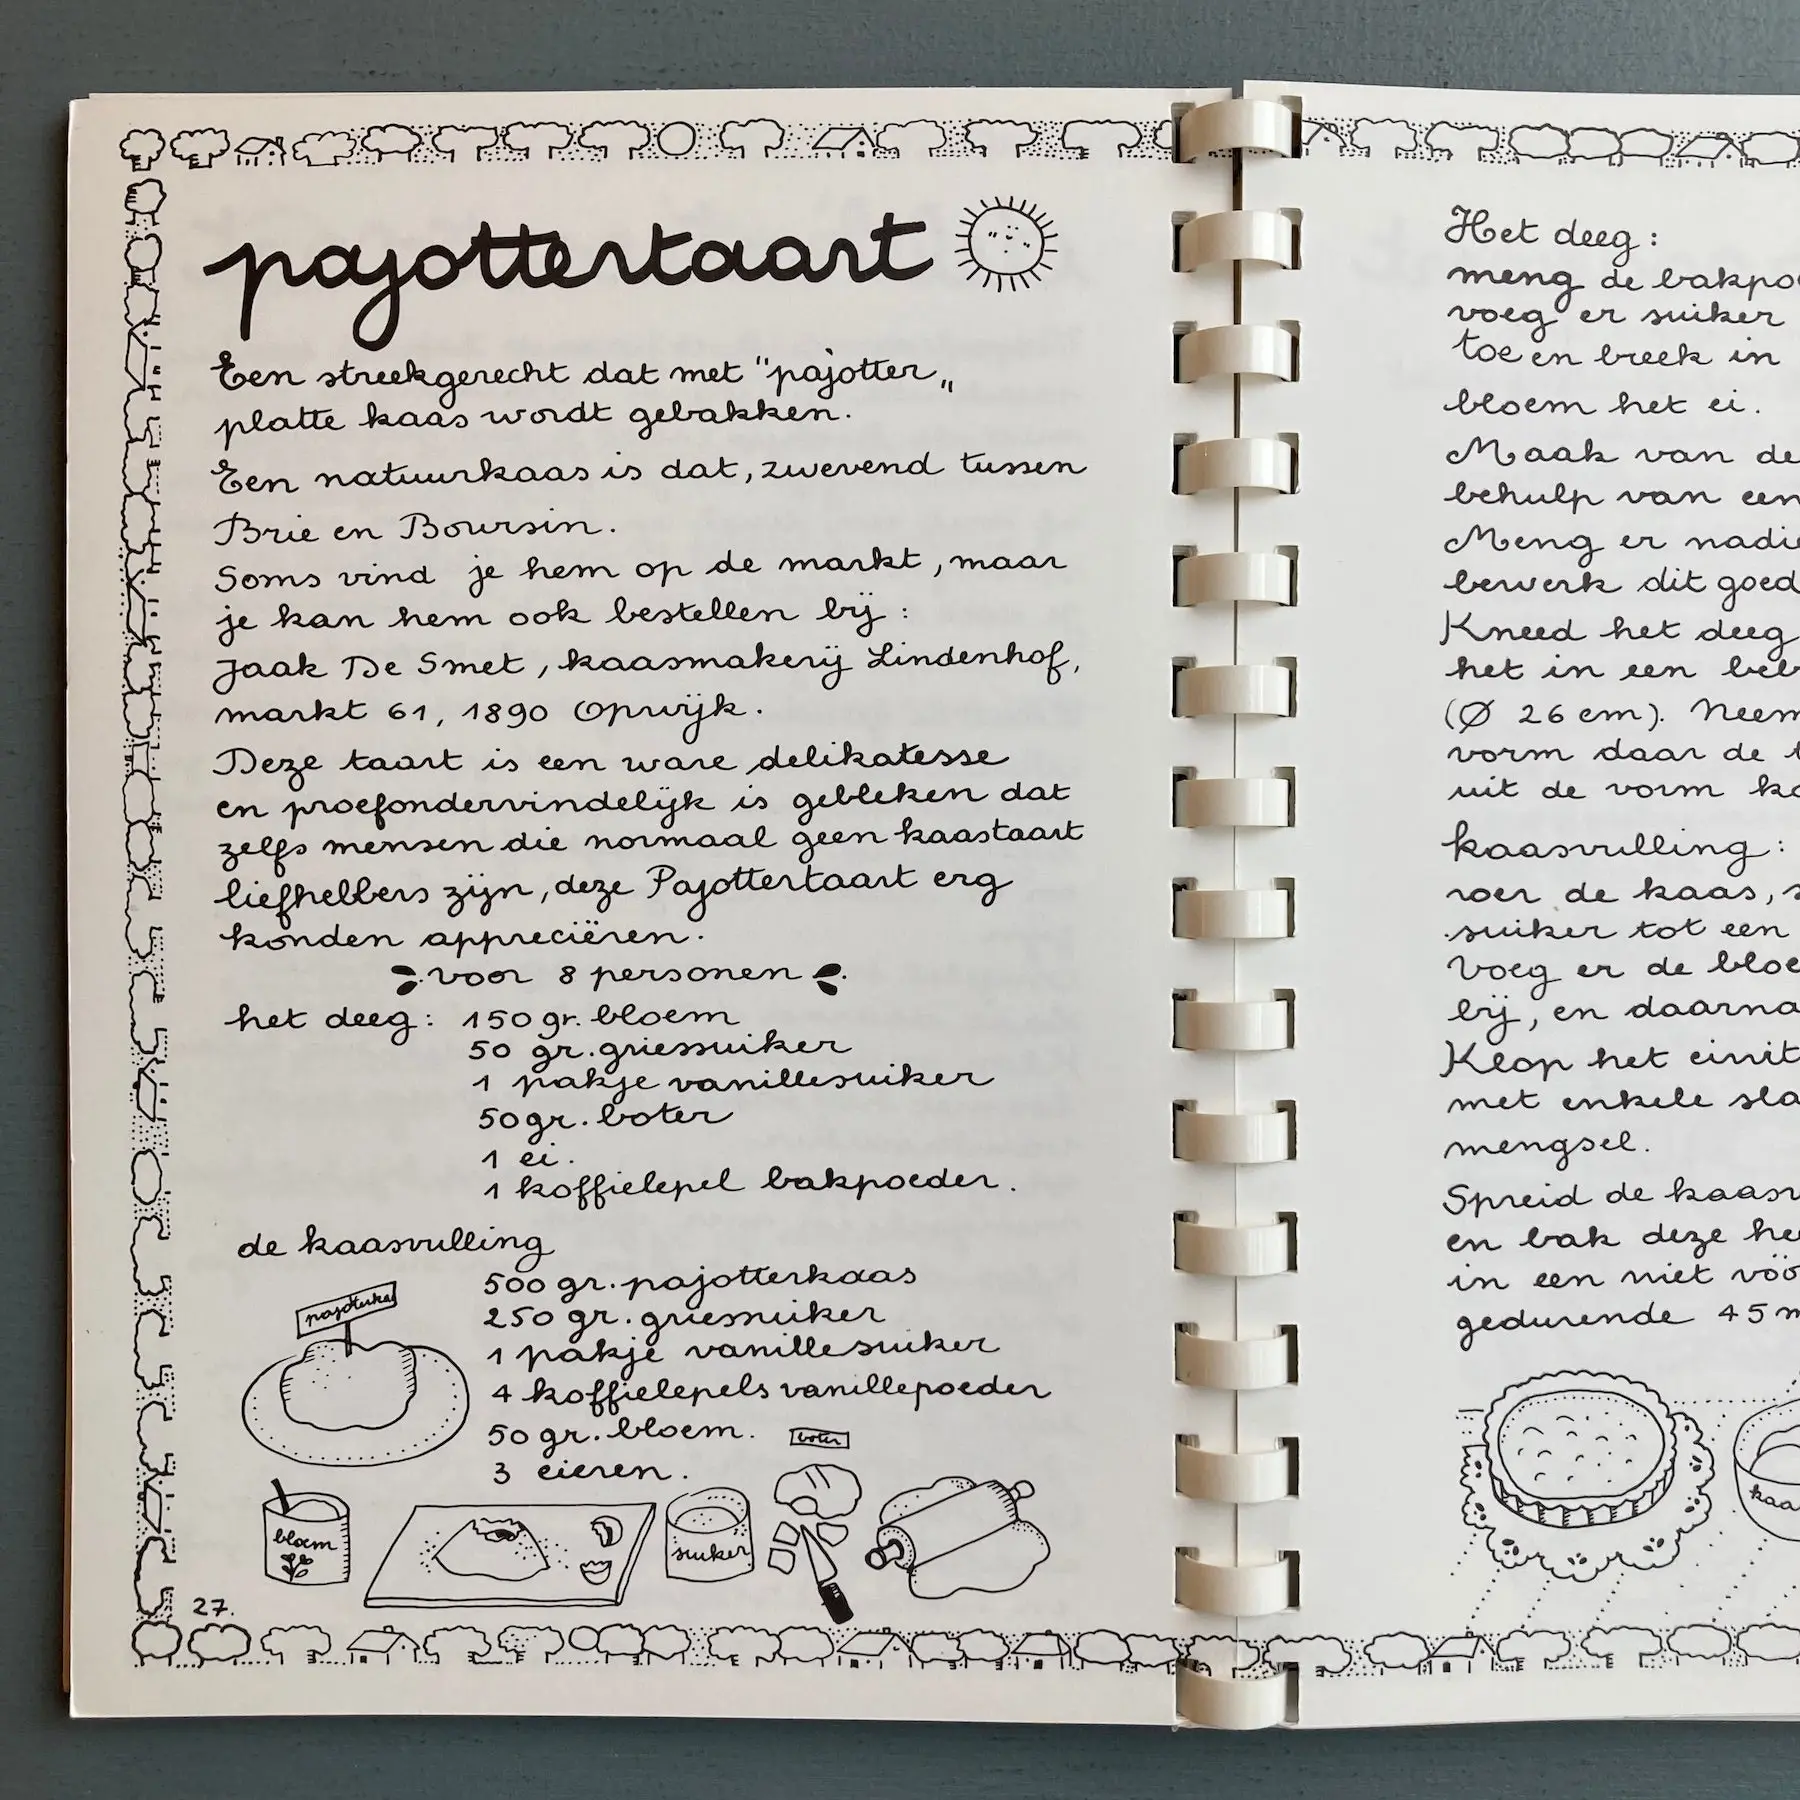 pajottertaart
Een streekgerecht dat met "pajotter„
platte kaas wordt gebakken.
Een natuurkaas is dat, zwevend tussen
Brie en Boursin.
Soms vind je hem op de markt, maar
je kan hem ook bestellen bij:
Jaak De Smet, kaasmakerij Lindenhof,
markt 61, 1890 Opwijk.
Deze taart is een ware delikatesse
en proefondervindelijk is gebleken dat
zelfs mensen die normaal geen kaastaart
liefhebbers zijn, deze Pajottertaart erg
konden appreciëren.
voor 8 personen
het deeg: 150 gr. bloem
50 gr. griessuiker
1 pakje vanillesuiker
50 gr. boter
1 ei.
1 koffielepel bakpoeder.
de kaasvulling
500 gr. pajotterkaas
250 gr. griessuiker
1 pakje vanillesuiker
4 koffielepels vanillepoeder
50 gr. bloem.
3 eieren.
boter
bloem
suiker
27.
Het deeg:
meng de bakpo
voeg er suiker
toe en breek in
bloem het ei.
Maak van de
behulp van een
Meng er nadi
bewerk dit goed
Kneed het deeg
het in een beb
(Ø 26 cm). Neem
vorm daar de
uit de vorm
kaasvulling:
roer de kaas, s
suiker tot een
Voeg er de bloe
bij, en daarna
Klop het eiwit
met enkele sla
mengsel.
Spreid de kaasv
en bak deze he
in een niet vóó
gedurende 45 m
kaa